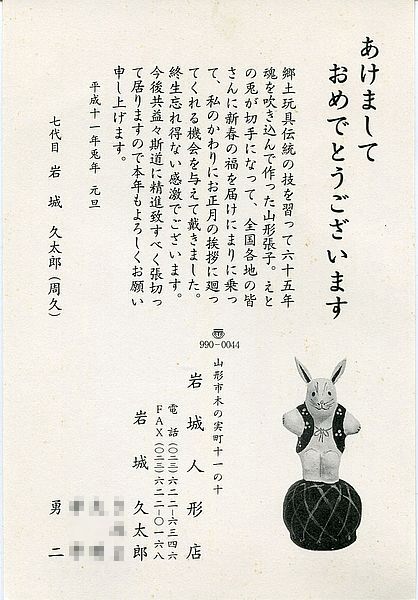 あけまして
おめでとうございます
郷土玩具伝統の技を習って六十五年
魂を吹き込んで作った山形張子。えと
の兎が切手になって、全国各地の皆
さんに新春の福を届けにまりに乗っ
て、私のかわりにお正月の挨拶に廻っ
てくれる機会を与えて戴きました。
終生忘れ得ない感激でございます。
今後共益々斯道に精進致すべく張切っ
て居りますので本年もよろしくお願い
申し上げます。
平成十一年兎年 元旦
七代目 岩城 久太郎(周久)
〒990-0044
山形市木の実町十一の十
岩城人形店
電話(〇二三)六二二-六三四六
FAX(〇二三)六二二-〇一六八
岩城 久太郎
勇二